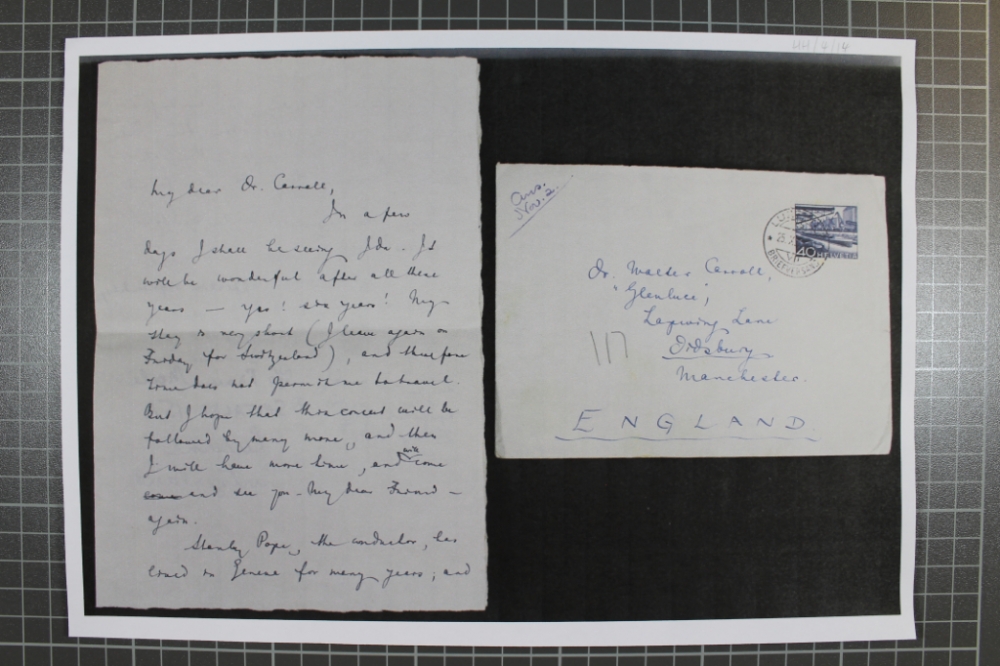 HH/7/14
My dear Dr. Carroll,
In a few
days I shall be seeing Ida. It
will be wonderful after all these
years — yes! six years! My
stay is very short (I leave again on
Tuesday for Switzerland), and therefore
time does not permit me to travel.
But I hope that this concert will be
followed by many more, and then
I will have more time, and will come
and see you - my dear Friend -
again.
Stanley Pope, the conductor, has
lived in Geneva for many years, and
Ans.
Nov. 2.
40 HELVETIA
Dr. Walter Carroll,
"Glenluce",
Lapwing Lane
Didsbury
Manchester.
ENGLAND